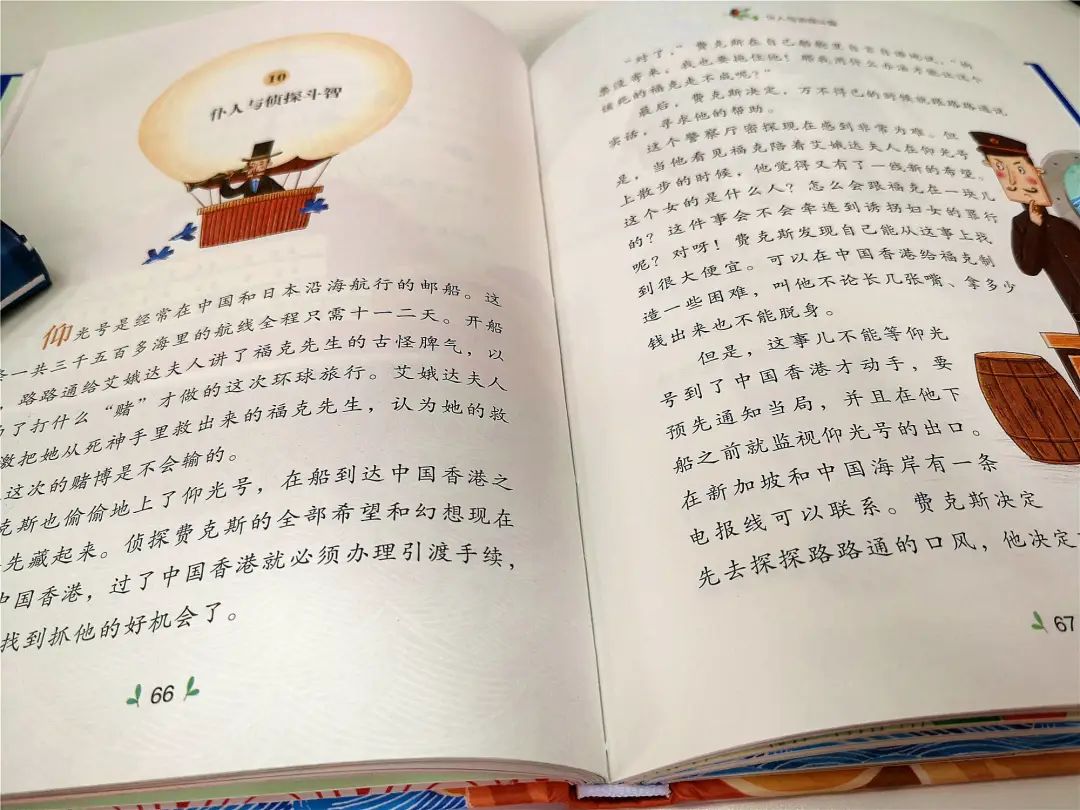 10
仆人与侦探斗智
仰光号是经常在中国和日本沿海航行的邮船。这
一共三千五百多海里的航线全程只需十一二天。开船
，路路通给艾娥达夫人讲了福克先生的古怪脾气，以
了打什么“赌”才做的这次环球旅行。艾娥达夫人
激把她从死神手里救出来的福克先生，认为她的救
这次的赌博是不会输的。
克斯也偷偷地上了仰光号，在船到达中国香港之
先藏起来。侦探费克斯的全部希望和幻想现在
中国香港，过了中国香港就必须办理引渡手续，
找到抓他的好机会了。
66
仆人与侦探斗智
“对了，”费克斯在自己船舱里自言自语地说，“如
该死的福克走不成呢？”
最后，费克斯决定，万不得已的时候就跟路路通说
实话，寻求他的帮助。
这个警察厅密探现在感到非常为难。但
是，当他看见福克陪着艾娥达夫人在仰光号
上散步的时候，他觉得又有了一线新的希望。
这个女的是什么人？怎么会跟福克在一块儿
的？这件事会不会牵连到诱拐妇女的罪行
呢？对呀！费克斯发现自己能从这事上找
到很大便宜。可以在中国香港给福克制
造一些困难，叫他不论长几张嘴、拿多少
钱出来也不能脱身。
但是，这事儿不能等仰光
号到了中国香港才动手，要
预先通知当局，并且在他下
船之前就监视仰光号的出口。
在新加坡和中国海岸有一条
电报线可以联系。费克斯决定
先去探探路路通的口风，他决定
67